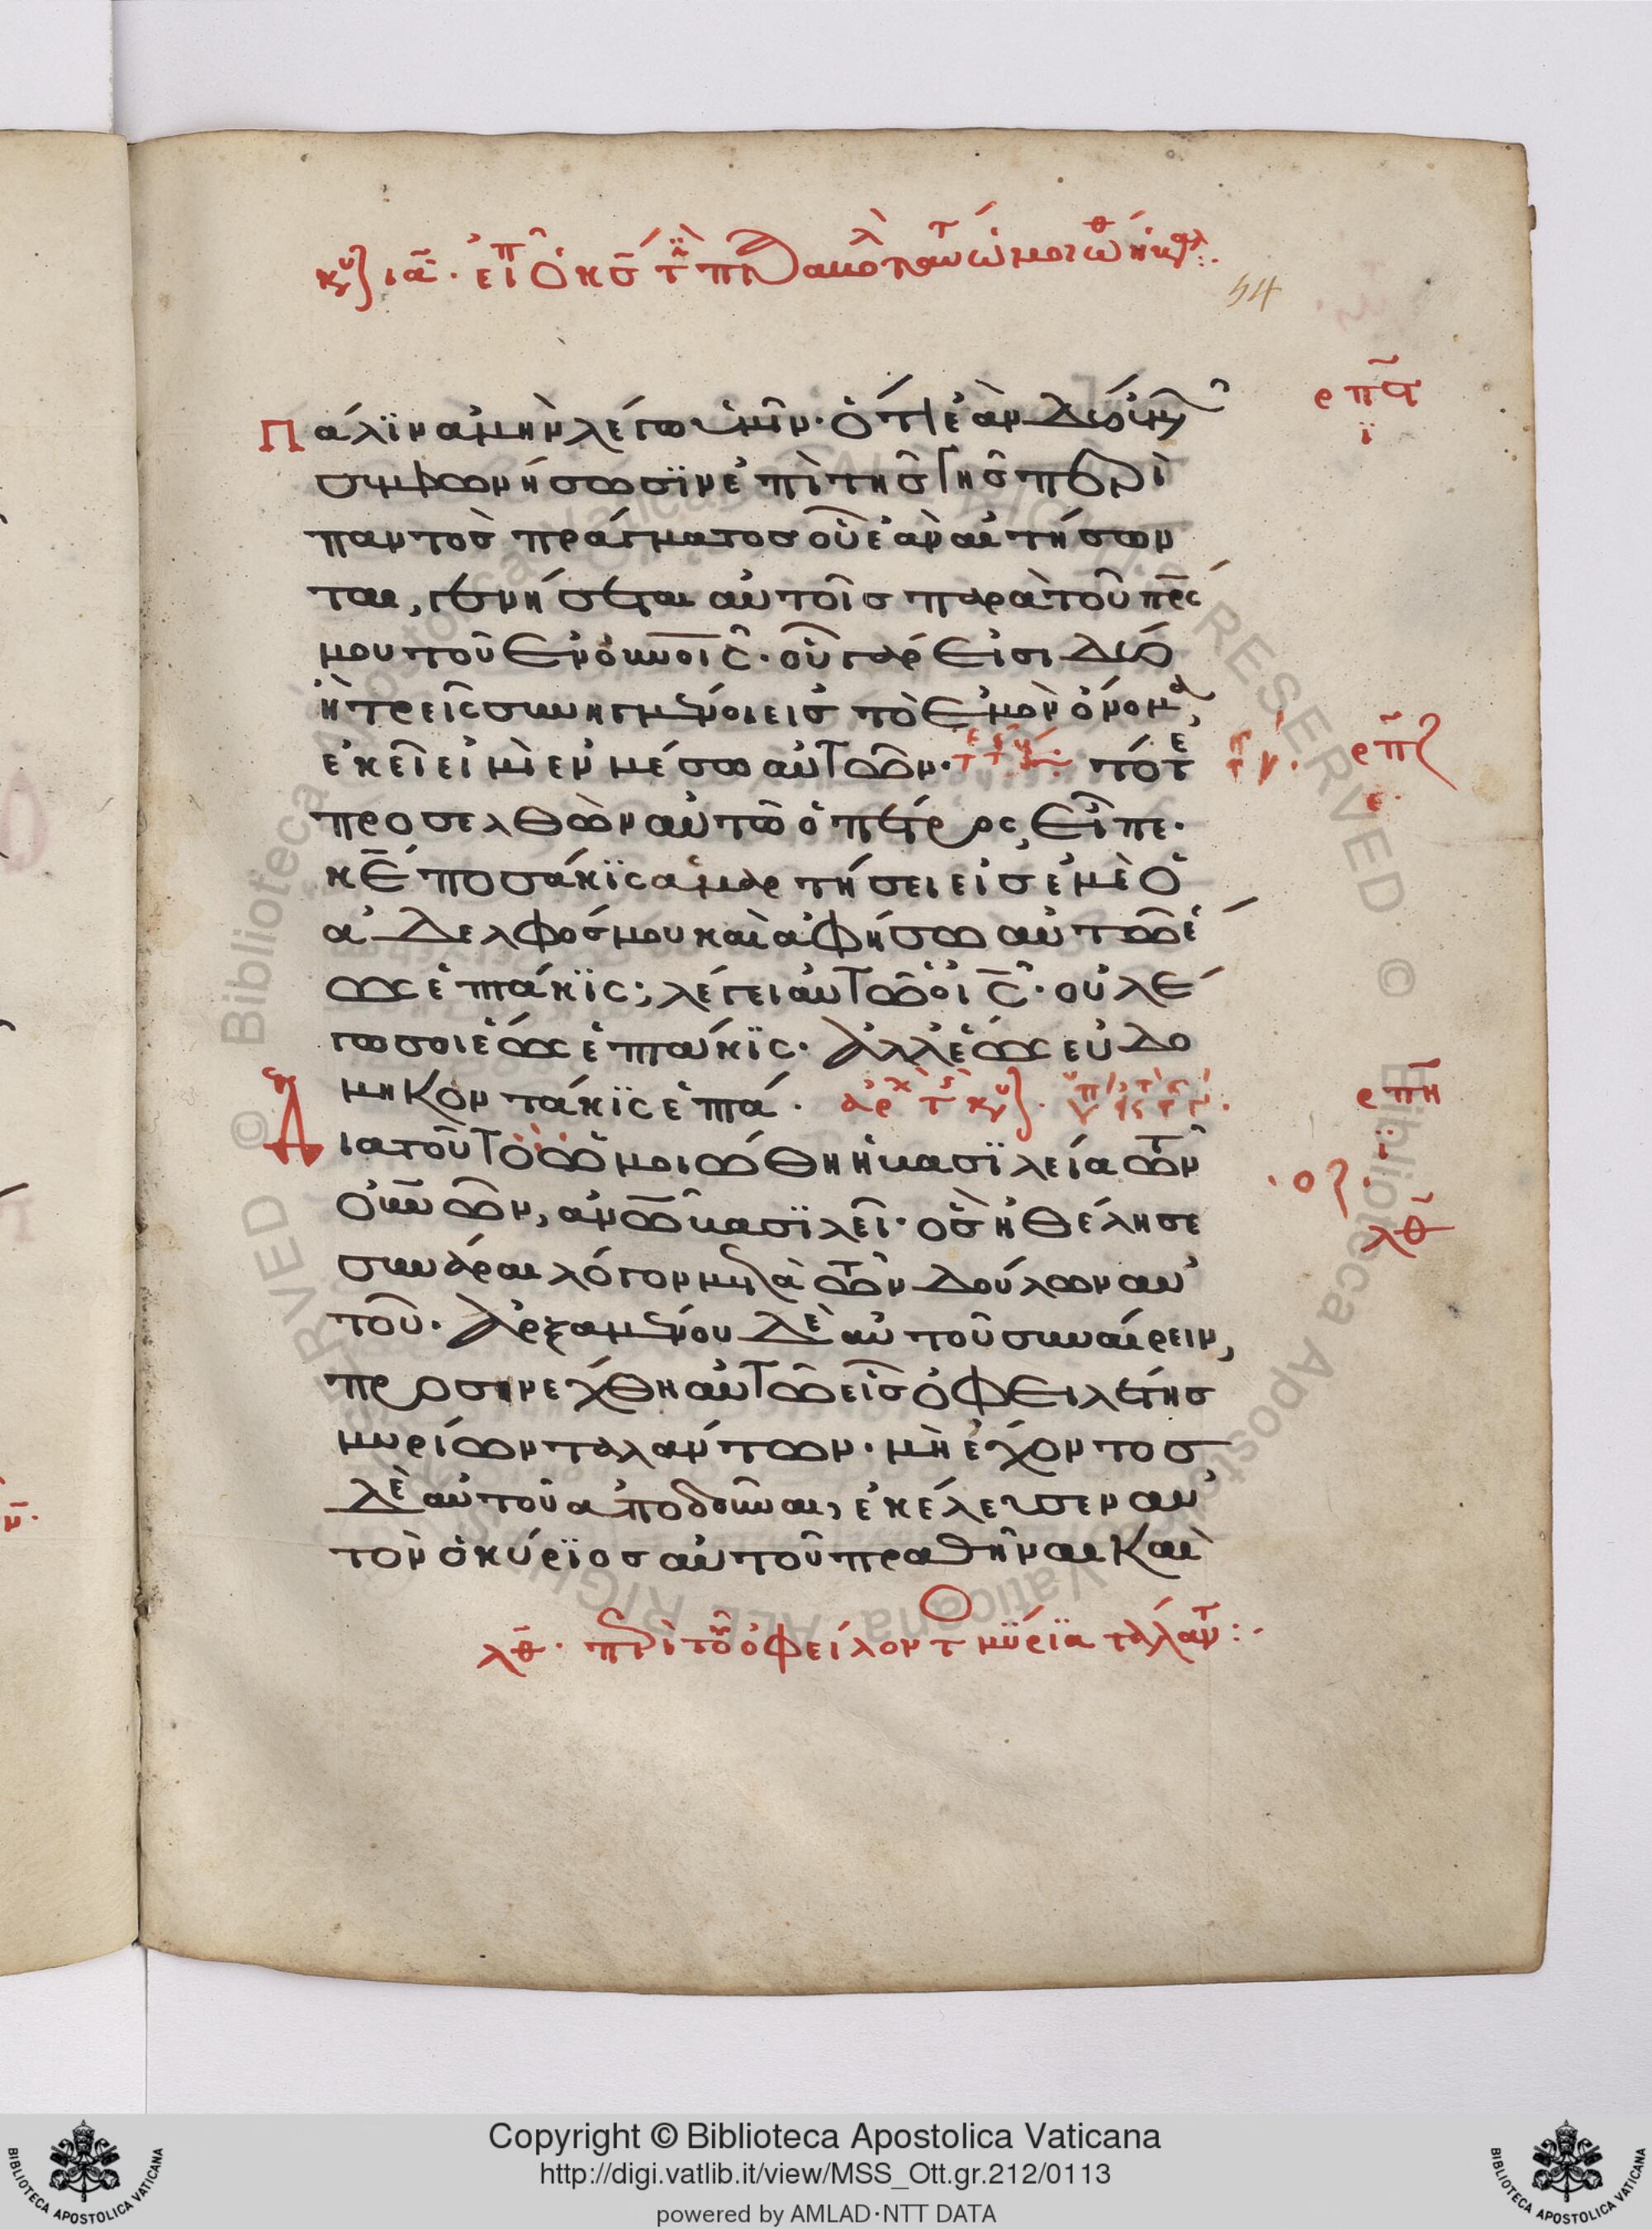 54
Πάλϊν ἀμὴν λέγω ὑμῖν· ὅτι ἐὰν δύο ὑμῶν
συμφωνήσωσϊν ἐπὶ τῆς γῆς περὶ
παντὸς πράγματος οὗ ἐὰν αἰτήσων
ται, γενήσεται αὐτοῖς παρὰ τοῦ πρς
μου τοῦ ἐν οὐνοις· οὗ γάρ εἰσι δύο
ἢ τρεῖς συνηγμένοι εἰς τὸ ἐμὸν ὄνομα,
ἐκεῖ εἰμὶ ἐν μέσω αὐτῶν· τότε
προσελθὼν αὐτῶ ὁ πέτρος, εἶπε·
κε ποσάκϊς ἁμαρτήσει εἰς ἐμὲ ὁ
ἀδελφός μου καὶ ἀφήσω αὐτῶ ἕ
ως ἑπτάκϊς; λέγει αὐτῶ ὁ ις· οὐ λέ
γω σοι ἕως ἑπτάκϊς· ἀλλ' ἕως εὐδο
μηκοντάκϊς ἑπτά·
Διατοῦτο ὡμοιώθη ἡ βασϊλεία τῶν
οὐνων, ἀνω βασϊλεῖ· ὃς ἠθέλησε
συνάραι λόγον μετὰ τῶν δούλων αὐ
τοῦ· ἀρξαμένου δὲ αὐτοῦ συναίρειν,
προσηνέχθη αὐτῶ εἷς ὀφειλέτης
μυρίων ταλάντων· μὴ ἔχοντος
δὲ αὐτοῦ ἀποδοῦναι, ἐκέλευσεν αὐ
τὸν ὁ κύρϊος αὐτοῦ πραθῆναι καὶ
λθ· περὶ τοῦ ὀφείλοντ μϋρία τάλαντ:·
ρπη
λθ
Copyright © Biblioteca Apostolica Vaticana
http://digi.vatlib.it/view/MSS_Ott.gr.212/0113
powered by AMLAD·NTT DATA
BIBLIOTECA APOSTOLICA VATICANA
BIBLIOTECA APOSTOLICA VATICANA